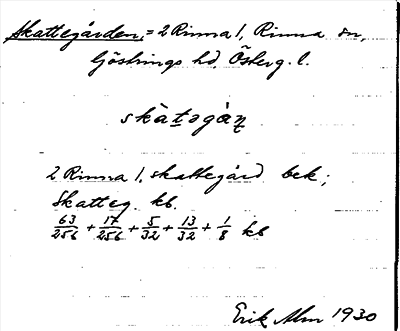 Skattegården = 2 Rinna 1, Rinna sn,
Göstrings hd, Österg. l.
skàtəgàɳ
2 Rinna 1, skattegård bek;
Skatteg. kb.
63/256 + 17/256 + 5/32 + 13/32 + 1/8 kb
Erik Alm 1930